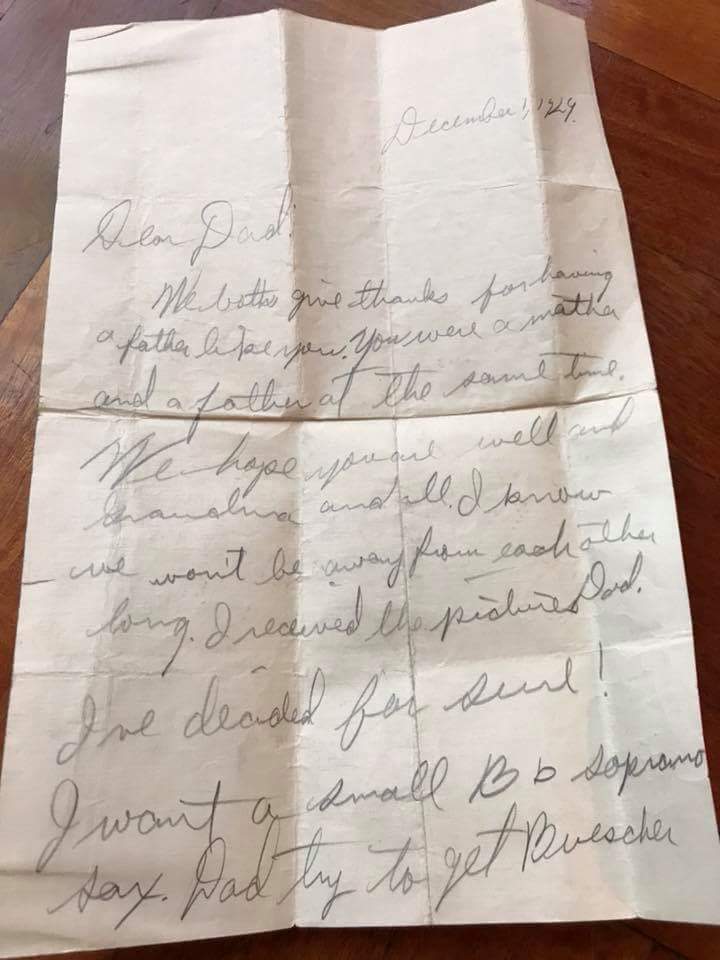 December 1, 1929.
Dear Dad:
We both give thanks for having
a father like you. You were a mother
and a father at the same time.
We hope you are well and
Grandma and all. I know
we won't be away from each other
long. I received the pictures Dad.
I've decided for sure!
I want a small Bb soprano
sax. Dad try to get Buescher